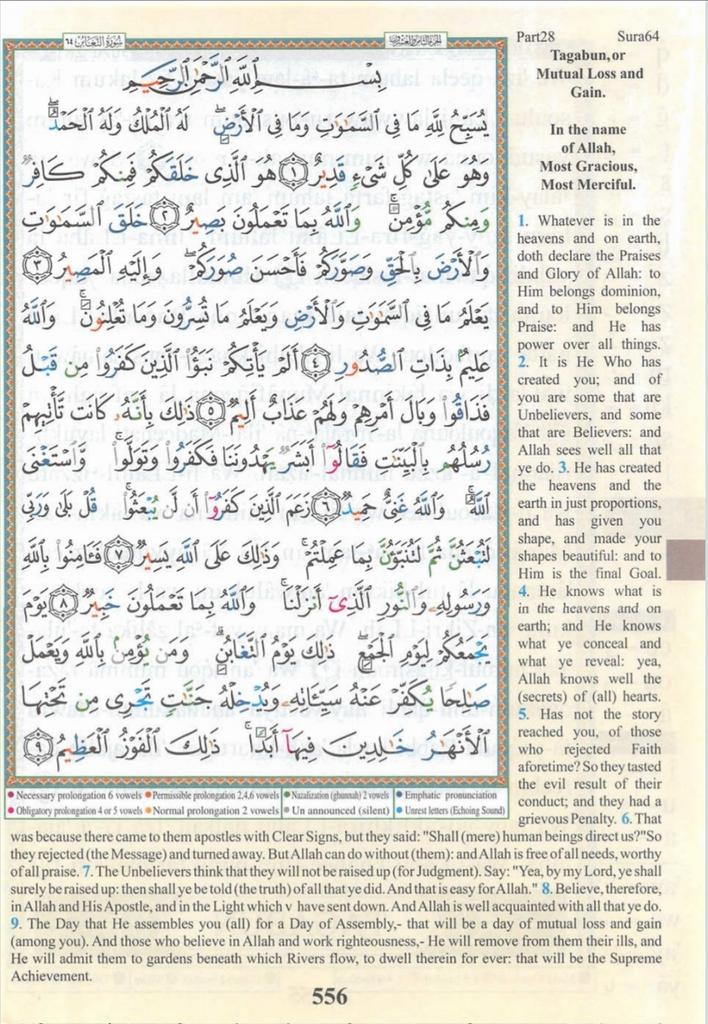 Part28 Sura64
سورة التغابن ٦٤
الجزء الثامن والعشرون
بِسْمِ ٱللَّهِ ٱلرَّحْمَٰنِ ٱلرَّحِيمِ
يُسَبِّحُ لِلَّهِ مَا فِى ٱلسَّمَٰوَٰتِ وَمَا فِى ٱلْأَرْضِ ۖ لَهُ ٱلْمُلْكُ وَلَهُ ٱلْحَمْدُ ۖ
وَهُوَ عَلَىٰ كُلِّ شَىْءٍ قَدِيرٌ ﴿١﴾ هُوَ ٱلَّذِى خَلَقَكُمْ فَمِنكُمْ كَافِرٌ
وَمِنكُم مُّؤْمِنٌ ۚ وَٱللَّهُ بِمَا تَعْمَلُونَ بَصِيرٌ ﴿٢﴾ خَلَقَ ٱلسَّمَٰوَٰتِ
وَٱلْأَرْضَ بِٱلْحَقِّ وَصَوَّرَكُمْ فَأَحْسَنَ صُوَرَكُمْ ۖ وَإِلَيْهِ ٱلْمَصِيرُ ﴿٣﴾
يَعْلَمُ مَا فِى ٱلسَّمَٰوَٰتِ وَٱلْأَرْضِ وَيَعْلَمُ مَا تُسِرُّونَ وَمَا تُعْلِنُونَ ۚ وَٱللَّهُ
عَلِيمٌۢ بِذَاتِ ٱلصُّدُورِ ﴿٤﴾ أَلَمْ يَأْتِكُمْ نَبَؤُا۟ ٱلَّذِينَ كَفَرُوا۟ مِن قَبْلُ
فَذَاقُوا۟ وَبَالَ أَمْرِهِمْ وَلَهُمْ عَذَابٌ أَلِيمٌ ﴿٥﴾ ذَٰلِكَ بِأَنَّهُۥ كَانَت تَّأْتِيهِمْ
رُسُلُهُم بِٱلْبَيِّنَٰتِ فَقَالُوٓا۟ أَبَشَرٌ يَهْدُونَنَا فَكَفَرُوا۟ وَتَوَلَّوا۟ ۚ وَّٱسْتَغْنَى
ٱللَّهُ ۚ وَٱللَّهُ غَنِىٌّ حَمِيدٌ ﴿٦﴾ زَعَمَ ٱلَّذِينَ كَفَرُوٓا۟ أَن لَّن يُبْعَثُوا۟ ۚ قُلْ بَلَىٰ وَرَبِّى
لَتُبْعَثُنَّ ثُمَّ لَتُنَبَّؤُنَّ بِمَا عَمِلْتُمْ ۚ وَذَٰلِكَ عَلَى ٱللَّهِ يَسِيرٌ ﴿٧﴾ فَـَٔامِنُوا۟ بِٱللَّهِ
وَرَسُولِهِۦ وَٱلنُّورِ ٱلَّذِىٓ أَنزَلْنَا ۚ وَٱللَّهُ بِمَا تَعْمَلُونَ خَبِيرٌ ﴿٨﴾ يَوْمَ
يَجْمَعُكُمْ لِيَوْمِ ٱلْجَمْعِ ۖ ذَٰلِكَ يَوْمُ ٱلتَّغَابُنِ ۗ وَمَن يُؤْمِنۢ بِٱللَّهِ وَيَعْمَلْ
صَٰلِحًا يُكَفِّرْ عَنْهُ سَيِّـَٔاتِهِۦ وَيُدْخِلْهُ جَنَّٰتٍ تَجْرِى مِن تَحْتِهَا
ٱلْأَنْهَٰرُ خَٰلِدِينَ فِيهَآ أَبَدًا ۚ ذَٰلِكَ ٱلْفَوْزُ ٱلْعَظِيمُ ﴿٩﴾
● Necessary prolongation 6 vowels ● Permissible prolongation 2,4,6 vowels ● Nazalization (ghunnah) 2 vowels ● Emphatic pronunciation
● Obligatory prolongation 4 or 5 vowels ● Normal prolongation 2 vowels ● Un announced (silent) ● Unrest letters (Echoing Sound)
Tagabun, or
Mutual Loss and
Gain.
In the name
of Allah,
Most Gracious,
Most Merciful.
1. Whatever is in the
heavens and on earth,
doth declare the Praises
and Glory of Allah: to
Him belongs dominion,
and to Him belongs
Praise: and He has
power over all things.
2. It is He Who has
created you; and of
you are some that are
Unbelievers, and some
that are Believers: and
Allah sees well all that
ye do. 3. He has created
the heavens and the
earth in just proportions,
and has given you
shape, and made your
shapes beautiful: and to
Him is the final Goal.
4. He knows what is
in the heavens and on
earth; and He knows
what ye conceal and
what ye reveal: yea,
Allah knows well the
(secrets) of (all) hearts.
5. Has not the story
reached you, of those
who rejected Faith
aforetime? So they tasted
the evil result of their
conduct; and they had a
grievous Penalty. 6. That
was because there came to them apostles with Clear Signs, but they said: "Shall (mere) human beings direct us?"So
they rejected (the Message) and turned away. But Allah can do without (them): and Allah is free of all needs, worthy
of all praise. 7. The Unbelievers think that they will not be raised up (for Judgment). Say: "Yea, by my Lord, ye shall
surely be raised up: then shall ye be told (the truth) of all that ye did. And that is easy for Allah." 8. Believe, therefore,
in Allah and His Apostle, and in the Light which v have sent down. And Allah is well acquainted with all that ye do.
9. The Day that He assembles you (all) for a Day of Assembly,- that will be a day of mutual loss and gain
(among you). And those who believe in Allah and work righteousness,- He will remove from them their ills, and
He will admit them to gardens beneath which Rivers flow, to dwell therein for ever: that will be the Supreme
Achievement.
556